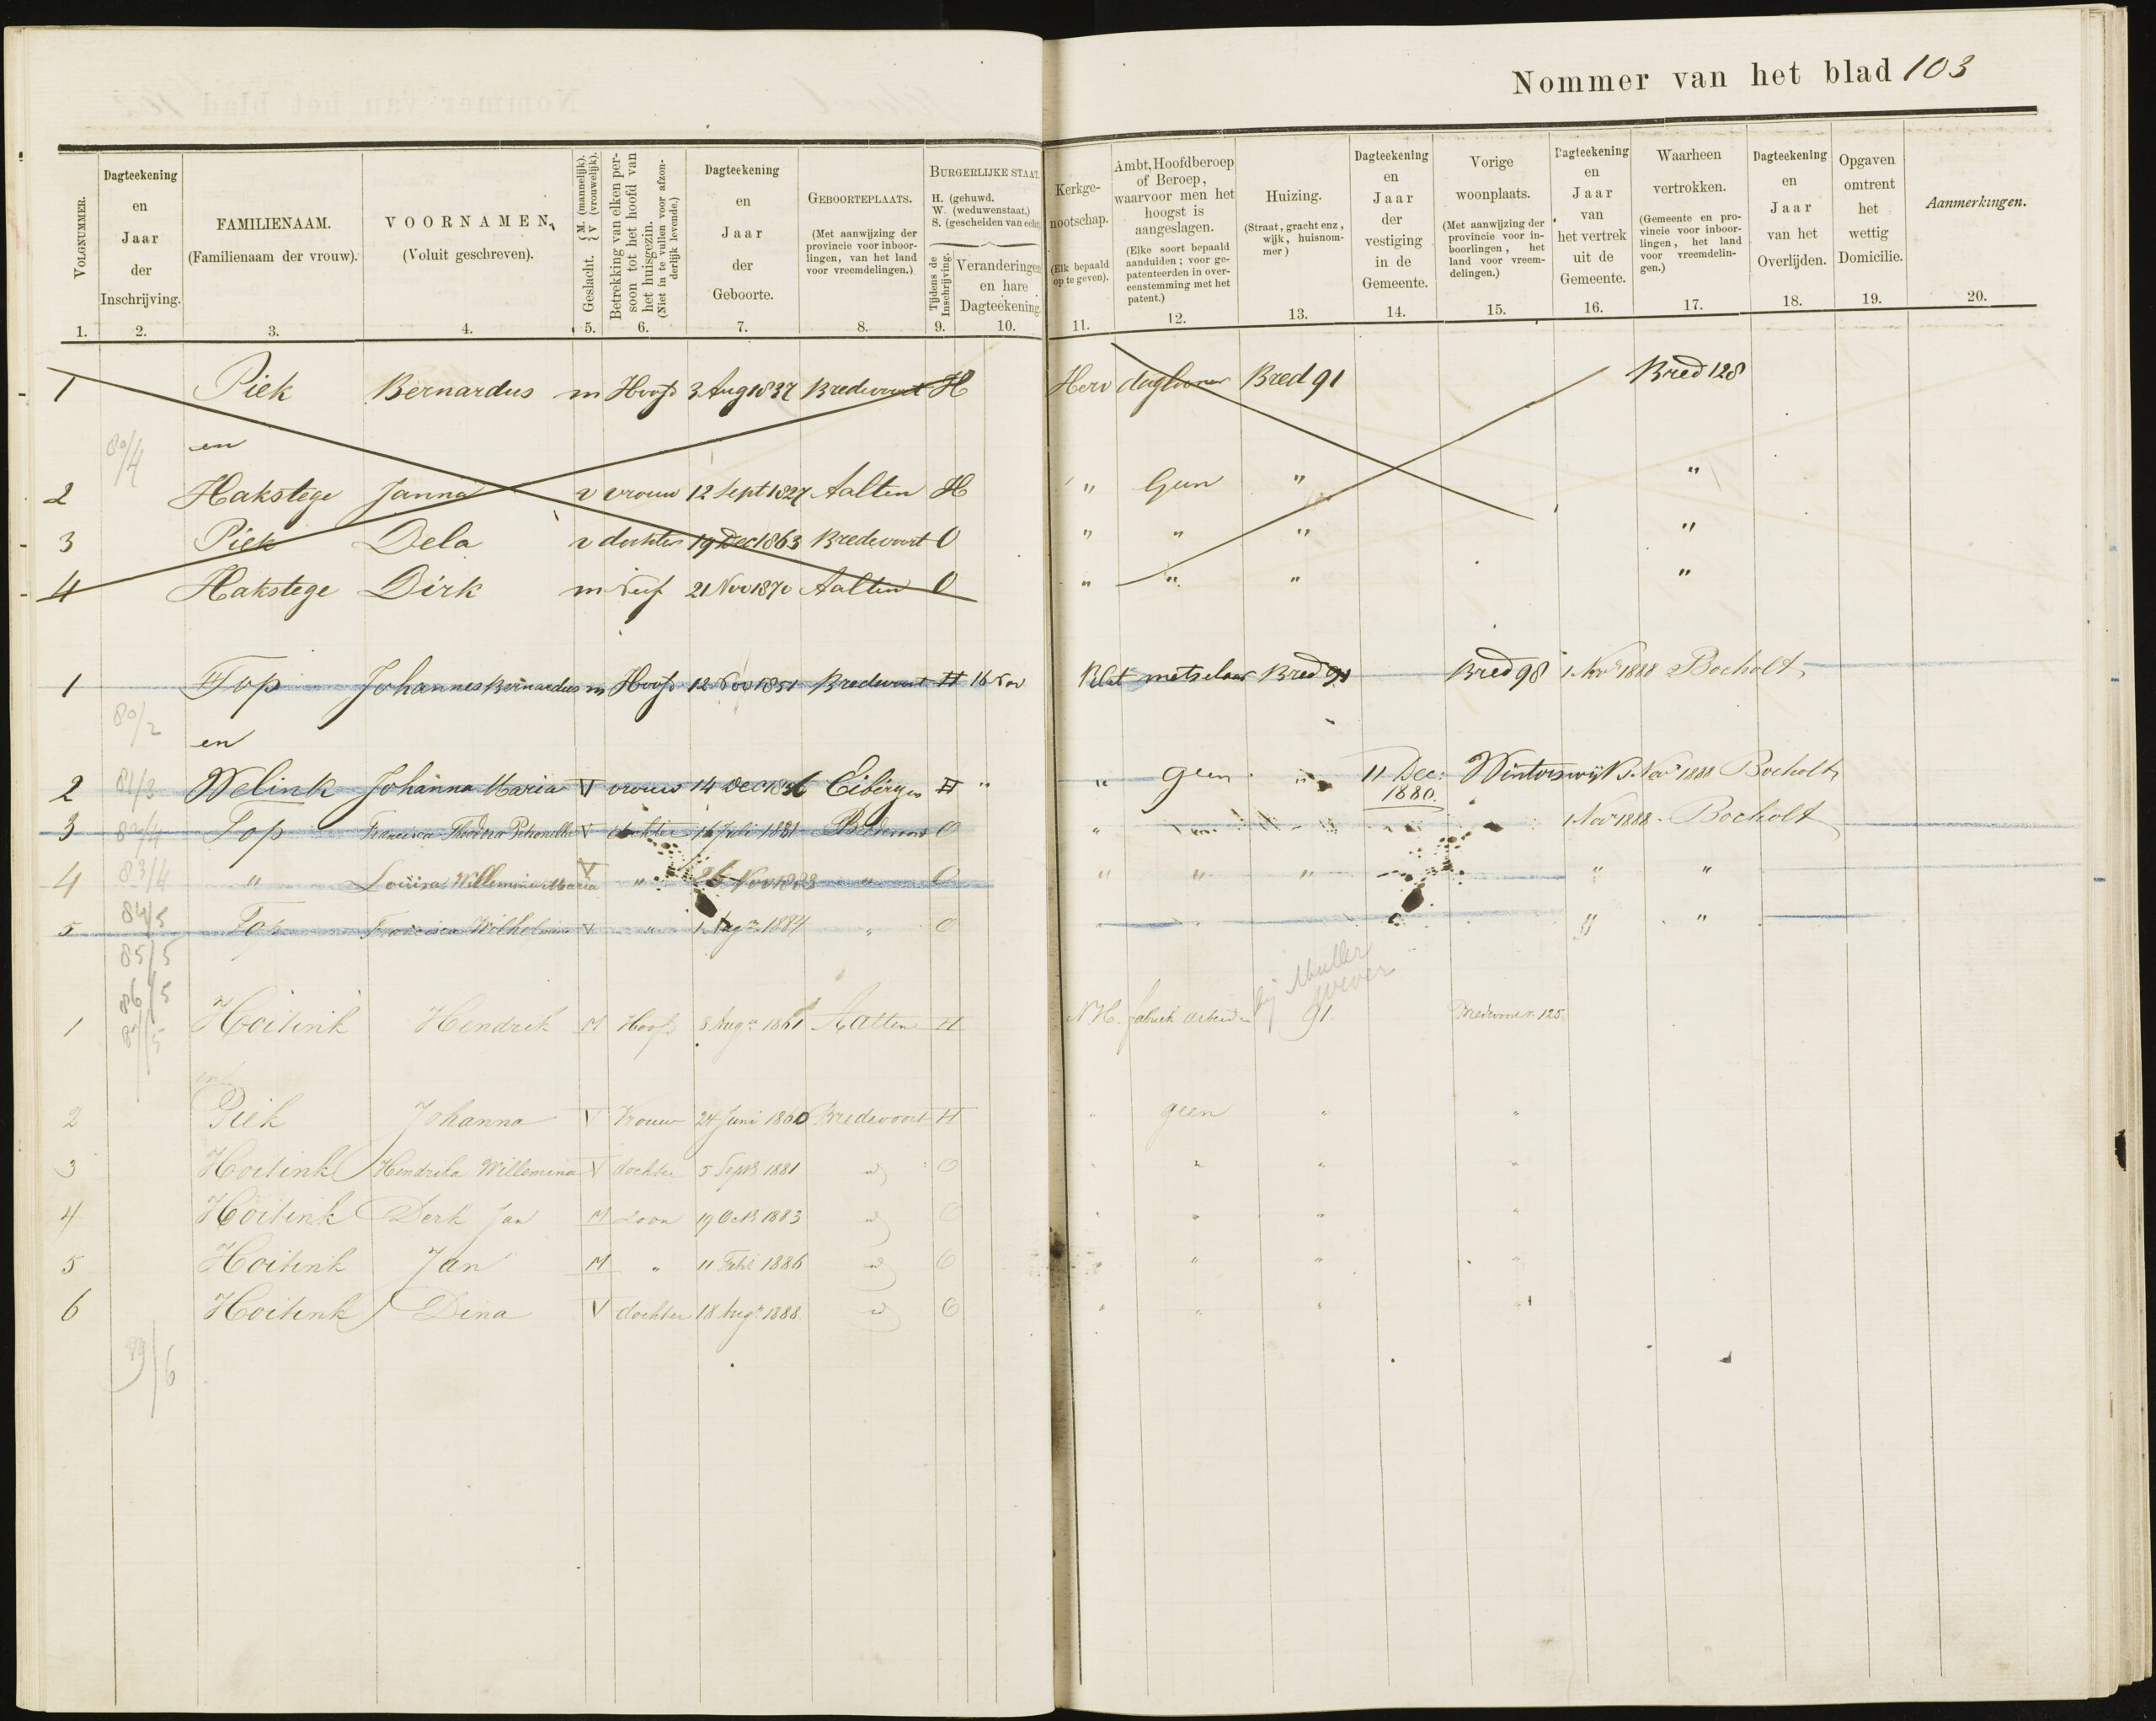 Nommer van het blad 103
VOLGNUMMER. 1.
Dagteekening en Jaar der Inschrijving. 2.
FAMILIENAAM. (Familienaam der vrouw). 3.
VOORNAMEN, (Voluit geschreven). 4.
Geslacht. {M. (mannelijk). {V (vrouwelijk). 5.
Betrekking van elken persoon tot het hoofd van het huisgezin. (Niet in te vullen voor afzonderlijk levende.) 6.
Dagteekening en Jaar der Geboorte. 7.
GEBOORTEPLAATS. (Met aanwijzing der provincie voor inboorlingen, van het land voor vreemdelingen.) 8.
BURGERLIJKE STAAT. H. (gehuwd. W. (weduwenstaat.) S. (gescheiden van echt
Tijdens de Inschrijving. 9.
Veranderingen en hare Dagteekening. 10.
Kerkgenootschap. (Elk bepaald op te geven). 11.
Ambt, Hoofdberoep of Beroep, waarvoor men het hoogst is aangeslagen. (Elke soort bepaald aanduiden; voor gepatenteerden in overeenstemming met het patent.) 12.
Huizing. (Straat, gracht enz, wijk, huisnommer) 13.
Dagteekening en Jaar der vestiging in de Gemeente. 14.
Vorige woonplaats. (Met aanwijzing der provincie voor inboorlingen, het land voor vreemdelingen.) 15.
Dagteekening en Jaar van het vertrek uit de Gemeente. 16.
Waarheen vertrokken. (Gemeente en provincie voor inboorlingen, het land voor vreemdelingen.) 17.
Dagteekening en Jaar van het Overlijden. 18.
Opgaven omtrent het wettig Domicilie. 19.
Aanmerkingen. 20.
1 Piek Bernardus m Hoofd 3 Aug 1837 Bredevoort H Herv daglooner Bred 91 Bred 128
80/4 en
2 Hakstege Janna v vrouw 12 Sept 1827 Aalten H " Geen " "
3 Piek Dela v dochter 19 Dec 1863 Bredevoort O " " " "
4 Hakstege Dirk m Neef 21 Nov 1870 Aalten O " " " "
1 Top Johannes Bernardus m Hoofd 12 Nov 1851 Bredevoort H 16 Nov metselaar Bred 91 Bred 98 1 Nov 1888 Bocholt
80/2 en
2 81/3 Welink Johanna Maria V vrouw 14 Dec Eibergen H " " geen " 11 Dec: 1880. Winterswijk 1 Nov 1888 Bocholt
3 82/4 Top Francisca Theodora V dochter Juli 1881 O " 1 Nov 1888 Bocholt
4 83/4 " Louisa Willemina Maria V " 26 Nov 1883 " O " " " " "
5 84/5 Top Francisca Wilhelmina V " 1 1887 " O " "
85/5
86/5
87/5
bij Muller wever
1 Hoitink Hendrik M Hoofd 8 Aug 1861 Aalten H N.H. fabriek arbeider 91 Bredevoort 125
en
2 Piek Johanna V Vrouw 24 Juni 1860 Bredevoort H " geen " "
3 Hoitink Hendrika Willemina V dochter 5 Sept 1881 id O " " " "
4 Hoitink Derk Jan M Zoon 19 Oct 1883 id O " " " "
5 Hoitink Jan M " 11 Feb 1886 id O " " "
6 Hoitink Dina V dochter 18 Aug 1888 id O " " " "
89/6